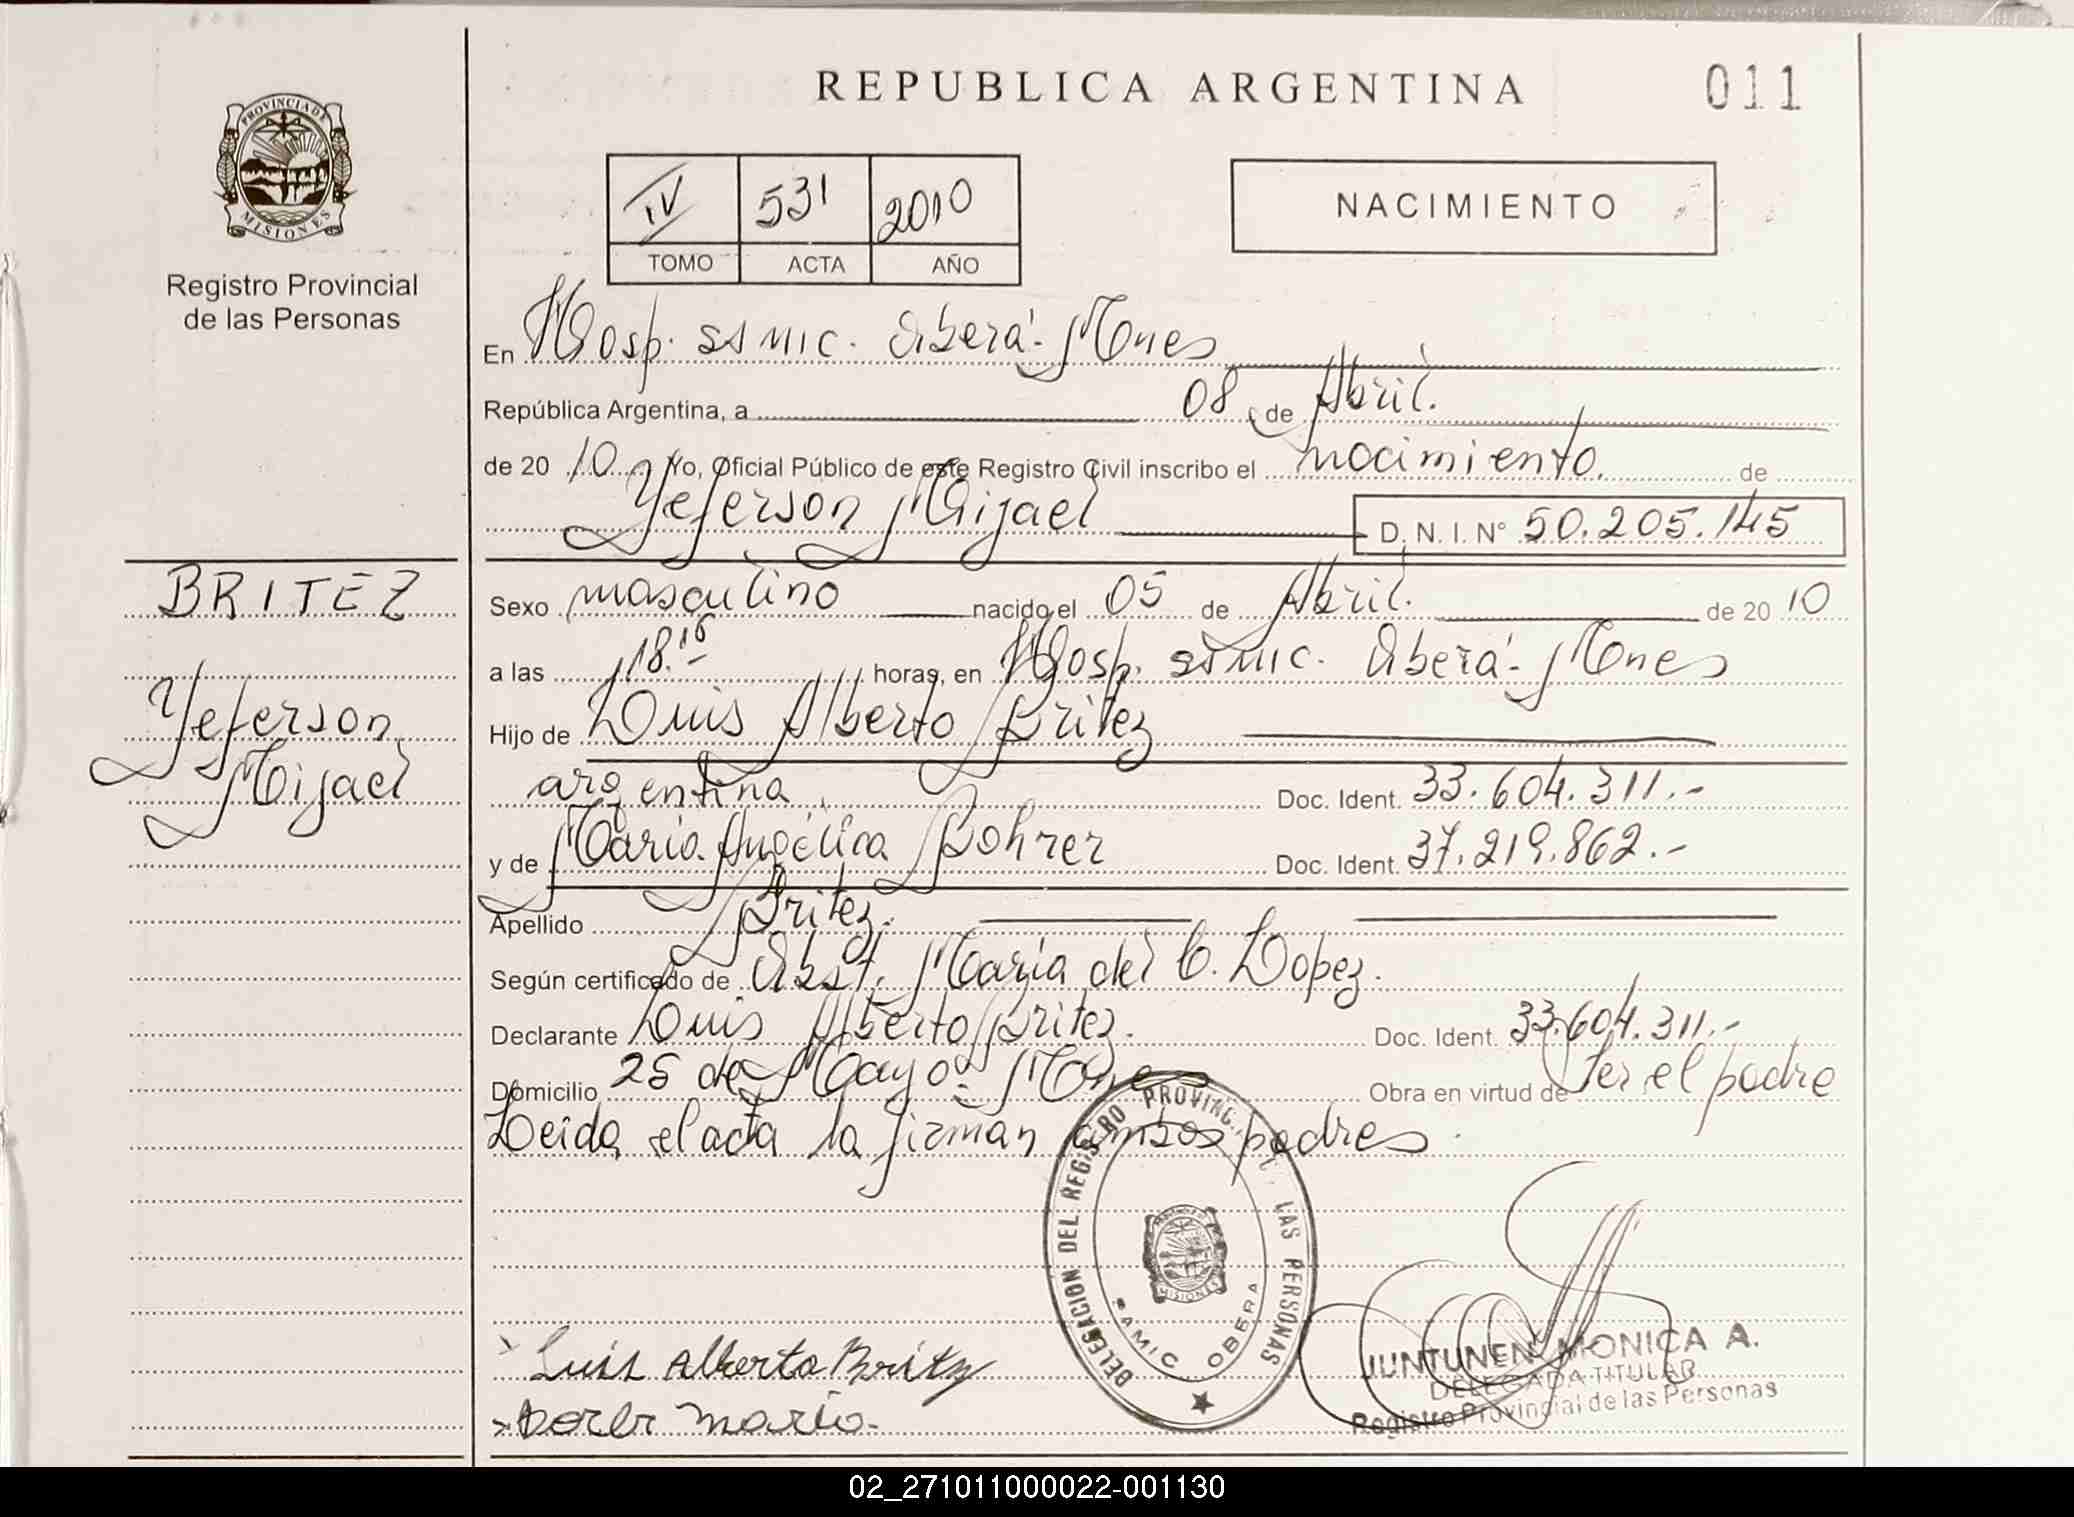 REPUBLICA ARGENTINA
011
PROVINCIA DE
MISIONES
Registro Provincial
de las Personas
IV 531 2010
TOMO ACTA AÑO
NACIMIENTO
En Hosp. SAMIC. Oberá - Mnes
República Argentina, a 08 de Abril.
de 20 10 Yo, Oficial Público de este Registro Civil inscribo el nacimiento. de
Yeferson Mijael D. N. I. Nº 50.205.145
BRITEZ
Yeferson
Mijael
Sexo masculino nacido el 05 de Abril. de 20 10
a las 18.15 horas, en Hosp. SAMIC. Oberá - Mnes
Hijo de Luis Alberto Britez
argentina Doc. Ident. 33.604.311.-
y de María Angélica Bohrer Doc. Ident. 37.219.862.-
Apellido Britez.
Según certificado de Obst. María del C. Lopez.
Declarante Luis Alberto Britez. Doc. Ident. 33.604.311.-
Domicilio 25 de Mayo - Mnes Obra en virtud de Ser el padre
Leida el acta la firman ambos padres.
DELEGACION DEL REGISTRO PROVINC. LAS PERSONAS
MISIONES
SAMIC OBERA
Luis Alberto Britz
JUNTUNEN MONICA A.
DELEGADA TITULAR
Registro Provincial de las Personas
02_271011000022-001130